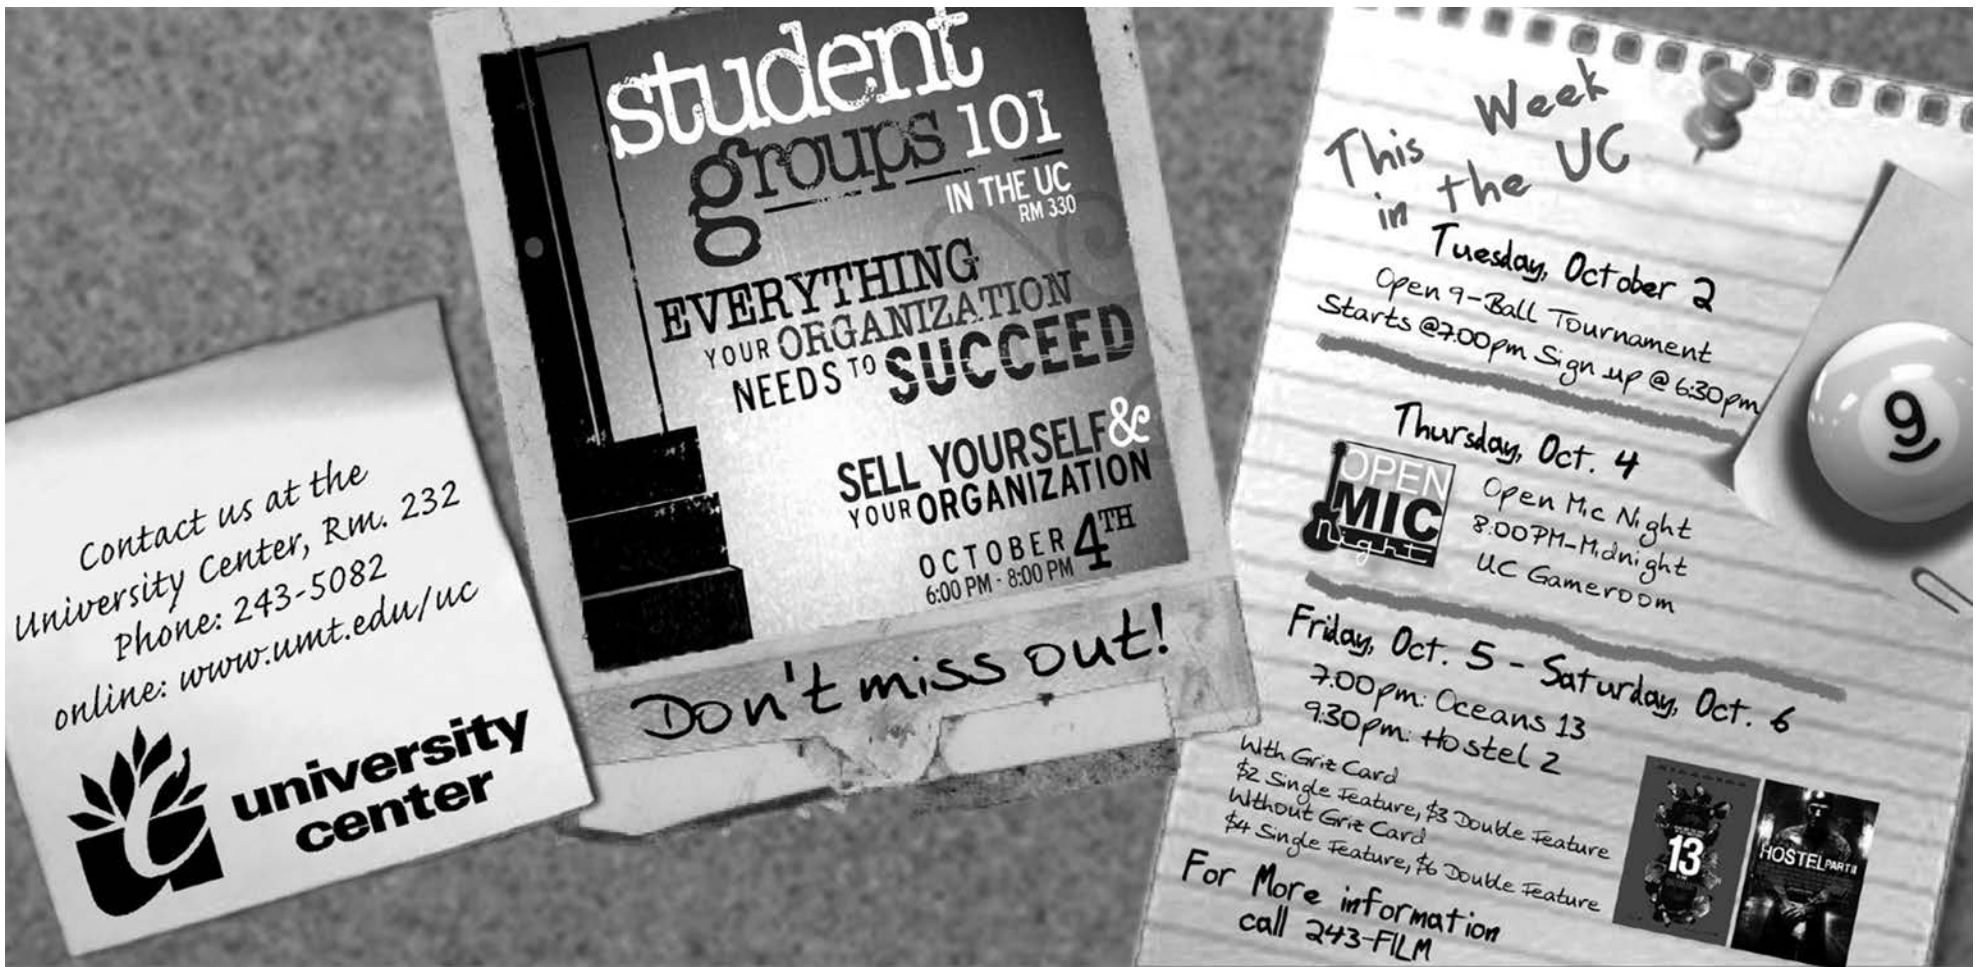 Contact us at the
University Center, Rm. 232
Phone: 243-5082
online: www.umt.edu/uc
university
center
student
groups 101
IN THE UC
RM 330
EVERYTHING
YOUR ORGANIZATION
NEEDS TO SUCCEED
SELL YOURSELF &
YOUR ORGANIZATION
OCTOBER 4TH
6:00 PM - 8:00 PM
Don't miss out!
This Week
in the UC
Tuesday, October 2
Open 9-Ball Tournament
Starts @7:00pm Sign up @ 6:30pm
9
Thursday, Oct. 4
OPEN
MIC
night
Open Mic Night
8:00PM-Midnight
UC Gameroom
Friday, Oct. 5 - Saturday, Oct. 6
7:00pm: Oceans 13
9:30pm: Hostel 2
With Griz Card
$2 Single Feature, $3 Double Feature
Without Griz Card
$4 Single Feature, $6 Double Feature
13
HOSTEL PART II
For More information
call 243-FILM